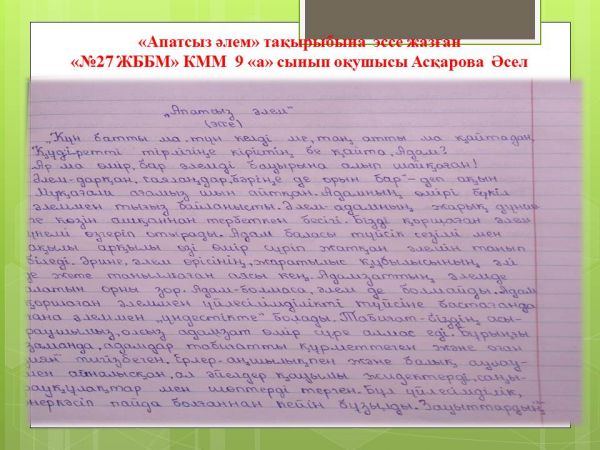 «Апатсыз әлем» тақырыбына эссе жазған
«№27 ЖББМ» КММ 9 «а» сынып оқушысы Асқарова Әсел
„Апатсыз әлем"
(эссе)
„Күн батты ма, түн келді ме, таң атты ма қайтадан,
Құдіретті тірлігіңе кірістің бе қайта, Адам?
Жар ма өмір, бар әлемді бауырына алып жайқаған!
Әлем-дарқан, ғаламдар, бәріңе де орын бар" – деп ақын
Мұқағали ағамыз шын айтқан. Адамның өмірі бүкіл
әлеммен тығыз байланысты. Әлем-адамның жарық дүние
ге көзін ашқаннан тербеткен бесігі. Бізді қоршаған әлем
үнемі өзгеріп отырады. Адам баласы түйсік сезімі мен
ақылы арқылы өзі өмір сүріп жатқан әлемін танып
біледі. Әрине, әлем өрісінің, жаратылыс құбылысының әлі
де жете танылмаған аясы кең. Адамзаттың әлемде
алатын орны зор. Адам-болмаса, әлем де болмайды. Адам
қоршаған әлеммен үйлесілімділікті түйсіне бастағанда
ғана әлеммен „үндестікте" болады. Табиғат-біздің асы-
раушымыз, онсыз адамзат өмір сүре алмас еді. Бұрынғы
заманда, адамдар табиғатты құрметтеген және оған
зиян тигізбеген. Ерлер-аңшылықпен және балық аулау-
мен айналысқан, ал әйелдер қауымы жидектерді, саңы-
рауқұлақтар мен шөптерді терген. Бұл үйлесімділік,
өнеркәсіп пайда болғаннан кейін бұзылды. Зауыттардың